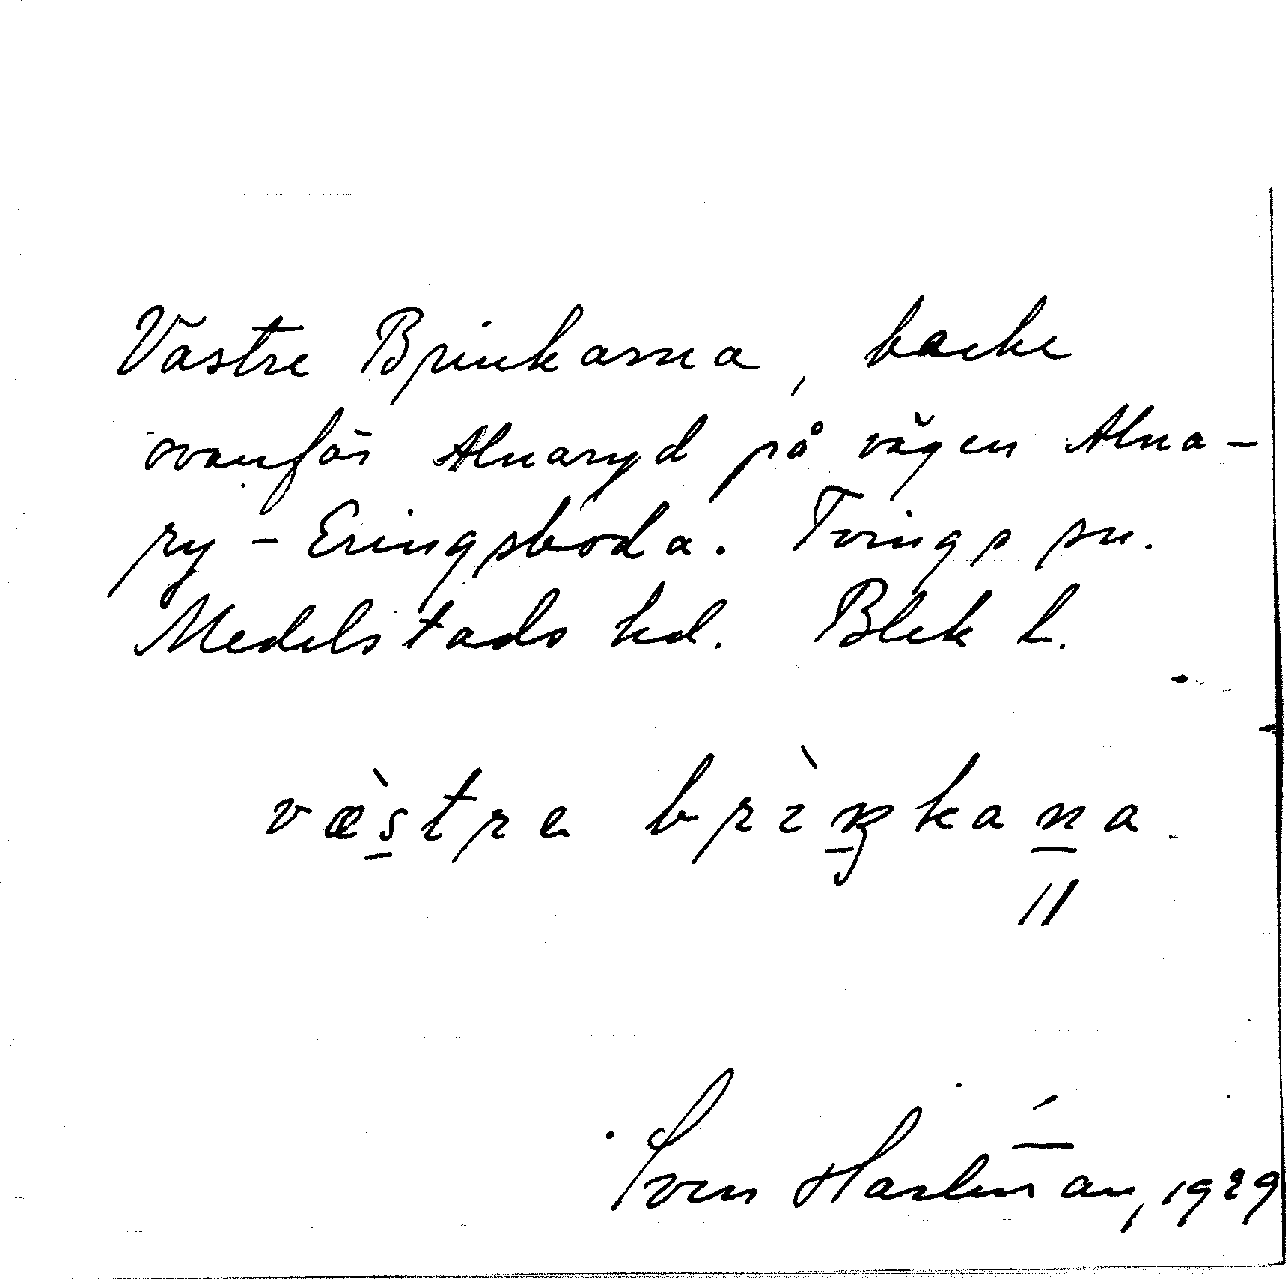 Västre Brinkarna, backe
ovanför Alnaryd på vägen Alna-
ry - Eringsboda. Tvings sn.
Medelstads hd. Blek L.
væ̀stra brìŋkana
Sven 1929